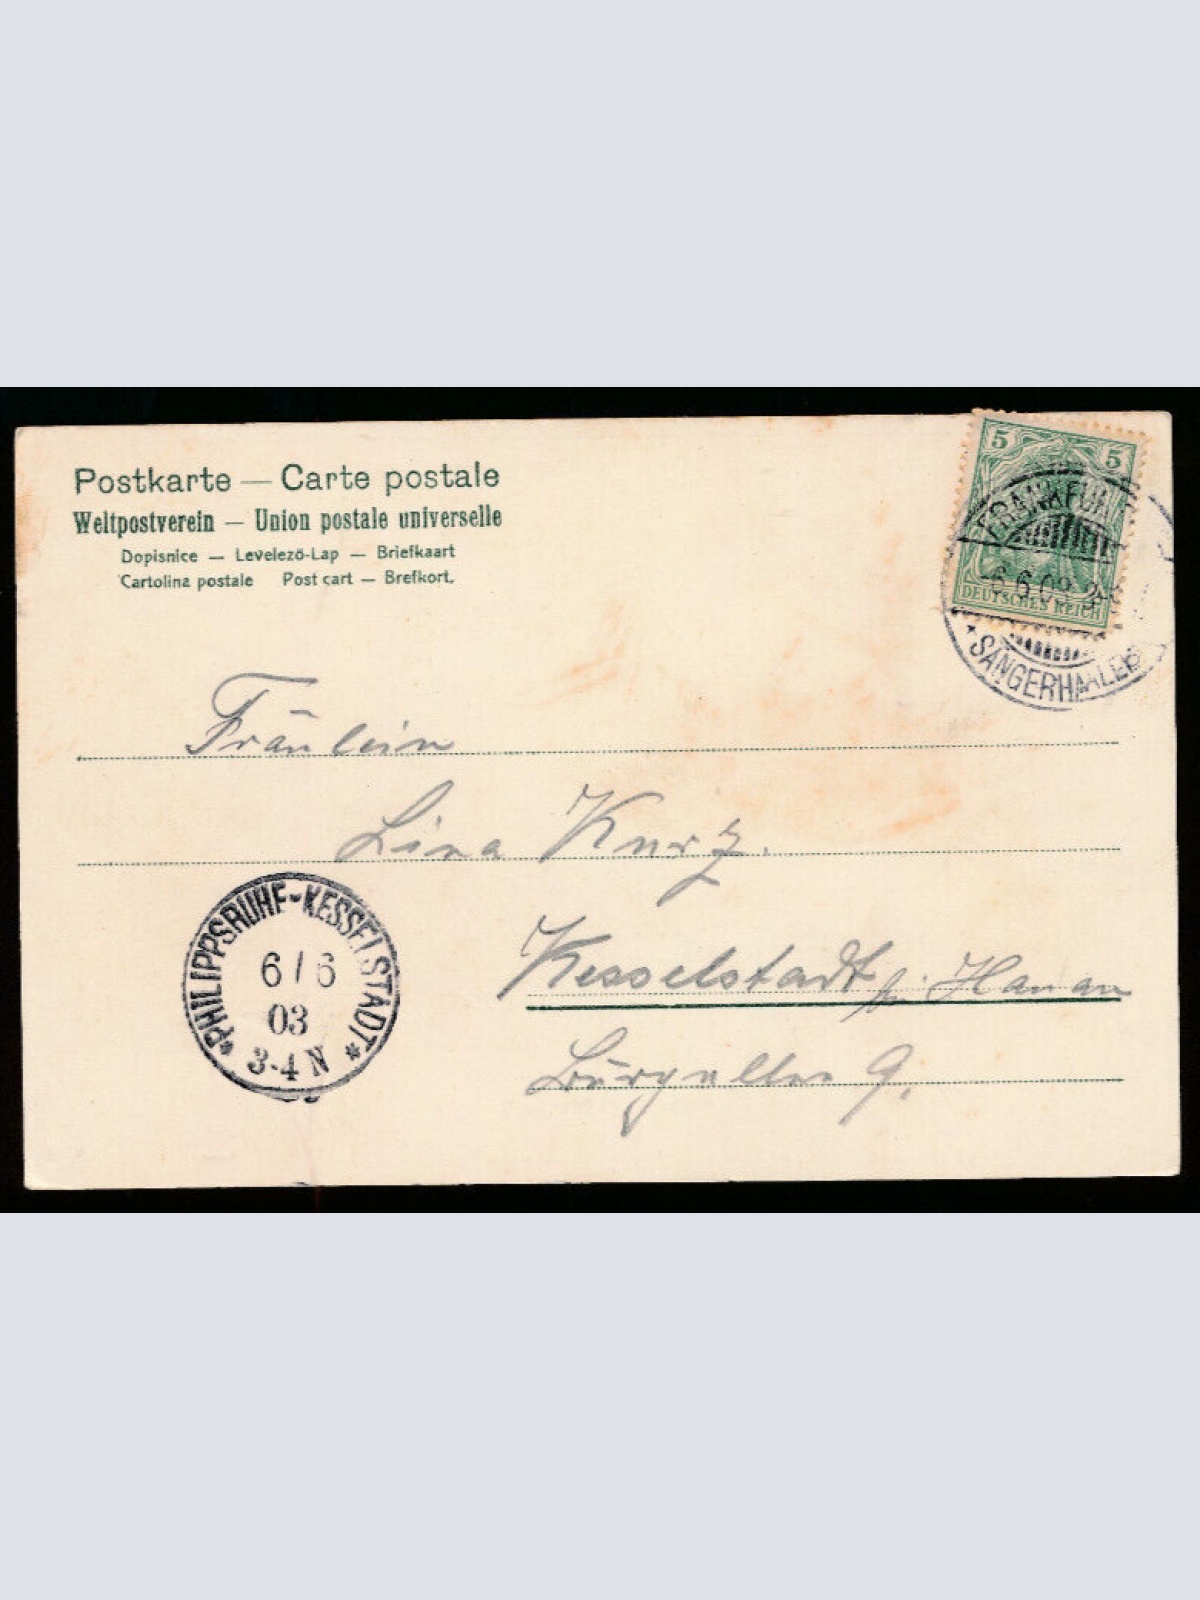 Postkarte — Carte postale
Weltpostverein — Union postale universelle
Dopisnice — Levelező-Lap — Briefkaart
Cartolina postale Post cart — Brefkort.
5 5
FRANKFURT
-6.6.03. 3
DEUTSCHES REICH
* SÄNGERHALLE
Fräulein
Lina Kurz.
* PHILIPPSRUHE-KESSELSTADT *
6/6
03
3-4 N
Kesselstadt b. Hanau
Burgallee 9.